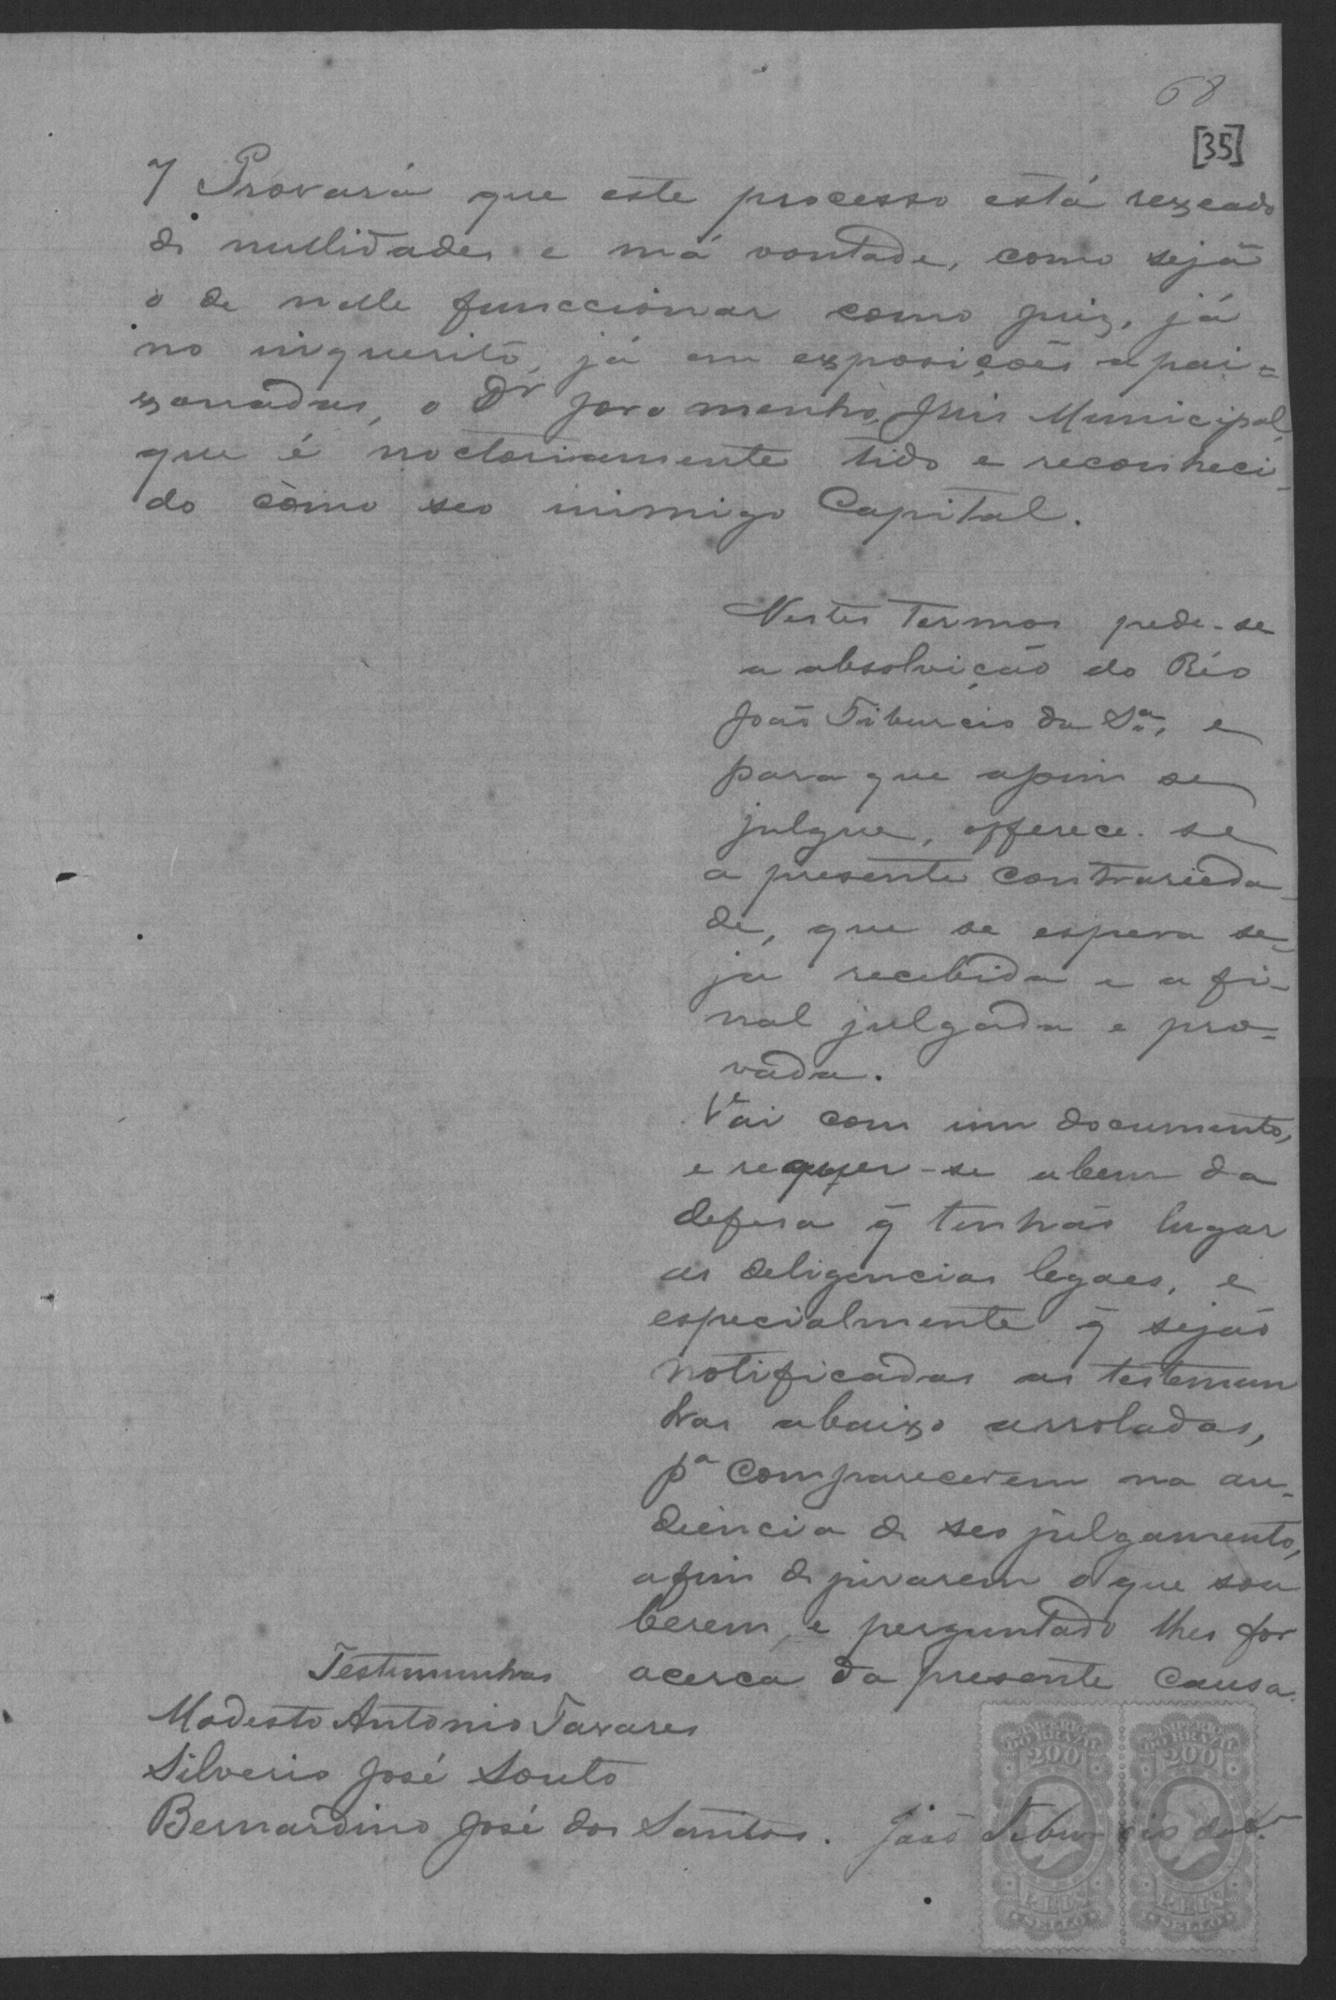 68
[35]
7 Provará que este processo está rexeado
de nullidades e má vontade, como sejã
o de nelle funccionar como juiz, já
no inquerito, já em exposições apai=
xonadas, o Dr Joro menho, Juis Municipal,
que é noctoriamente tido e reconheci-
do como seo inimigo Capital.
Nestes Termos pede-se
a absolvição do Réo
João Tiburcio da Sa, e
para que assim se
julgue, offerece-se
a presente contrarieda-
de, que se espera se-
ja recebida e a fi-
nal julgada e pro-
vada.
Vai com um documento,
e requer-se abem da
defesa q̃ tenhão lugar
as deligencias legaes, e
especialmente q̃ sejão
notificadas as testemun
has abaixo arroladas,
pa comparecerem na au-
diencia de seo julgamento,
afim de jurarem o que sou
berem, e perguntado lhes for
acerca da presente causa.
Testimunhas
Modesto Antonio Tavares
Silverio José Souto
Bernardino José dos Santos. João Tiburcio da Sa
IMPERIO DO BRAZIL 200 REIS SELLO
IMPERIO DO BRAZIL 200 REIS SELLO